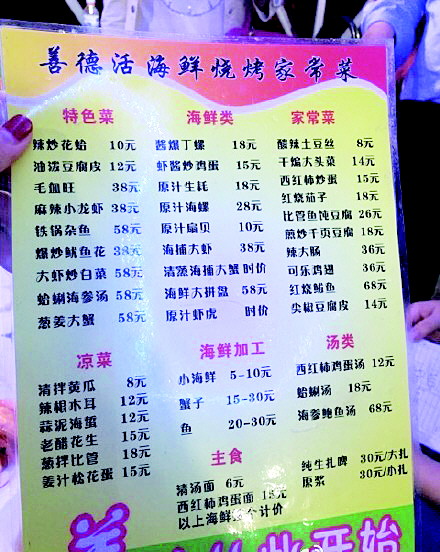 善德活海鲜烧烤家常菜
特色菜
辣炒花蛤 10元
油泼豆腐皮 12元
毛血旺 38元
麻辣小龙虾 38元
铁锅杂鱼 58元
爆炒鱿鱼花 38元
大虾炒白菜 58元
蛤蜊海参汤 58元
葱姜大蟹 58元
海鲜类
酱爆丁螺 18元
虾酱炒鸡蛋 15元
原汁生蚝 18元
原汁海螺 28元
原汁扇贝 10元
海捕大虾 38元
清蒸海捕大蟹 时价
海鲜大拼盘 58元
原汁虾虎 时价
家常菜
酸辣土豆丝 8元
干煸大头菜 14元
西红柿炒蛋 15元
红烧茄子 18元
比管鱼炖豆腐 26元
煎炒千页豆腐 18元
辣大肠 36元
可乐鸡翅 36元
红烧鲅鱼 68元
尖椒豆腐皮 14元
凉菜
清拌黄瓜 8元
辣根木耳 12元
蒜泥海蜇 12元
老醋花生 15元
葱拌比管 18元
姜汁松花蛋 15元
海鲜加工
小海鲜 5-10元
蟹子 15-30元
鱼 20-30元
汤类
西红柿鸡蛋汤 12元
蛤蜊汤 18元
海参鲍鱼汤 68元
主食
清汤面 6元
西红柿鸡蛋面 15元
以上海鲜 个计价
纯生扎啤 30元/大扎
原浆 30元/小扎
开始